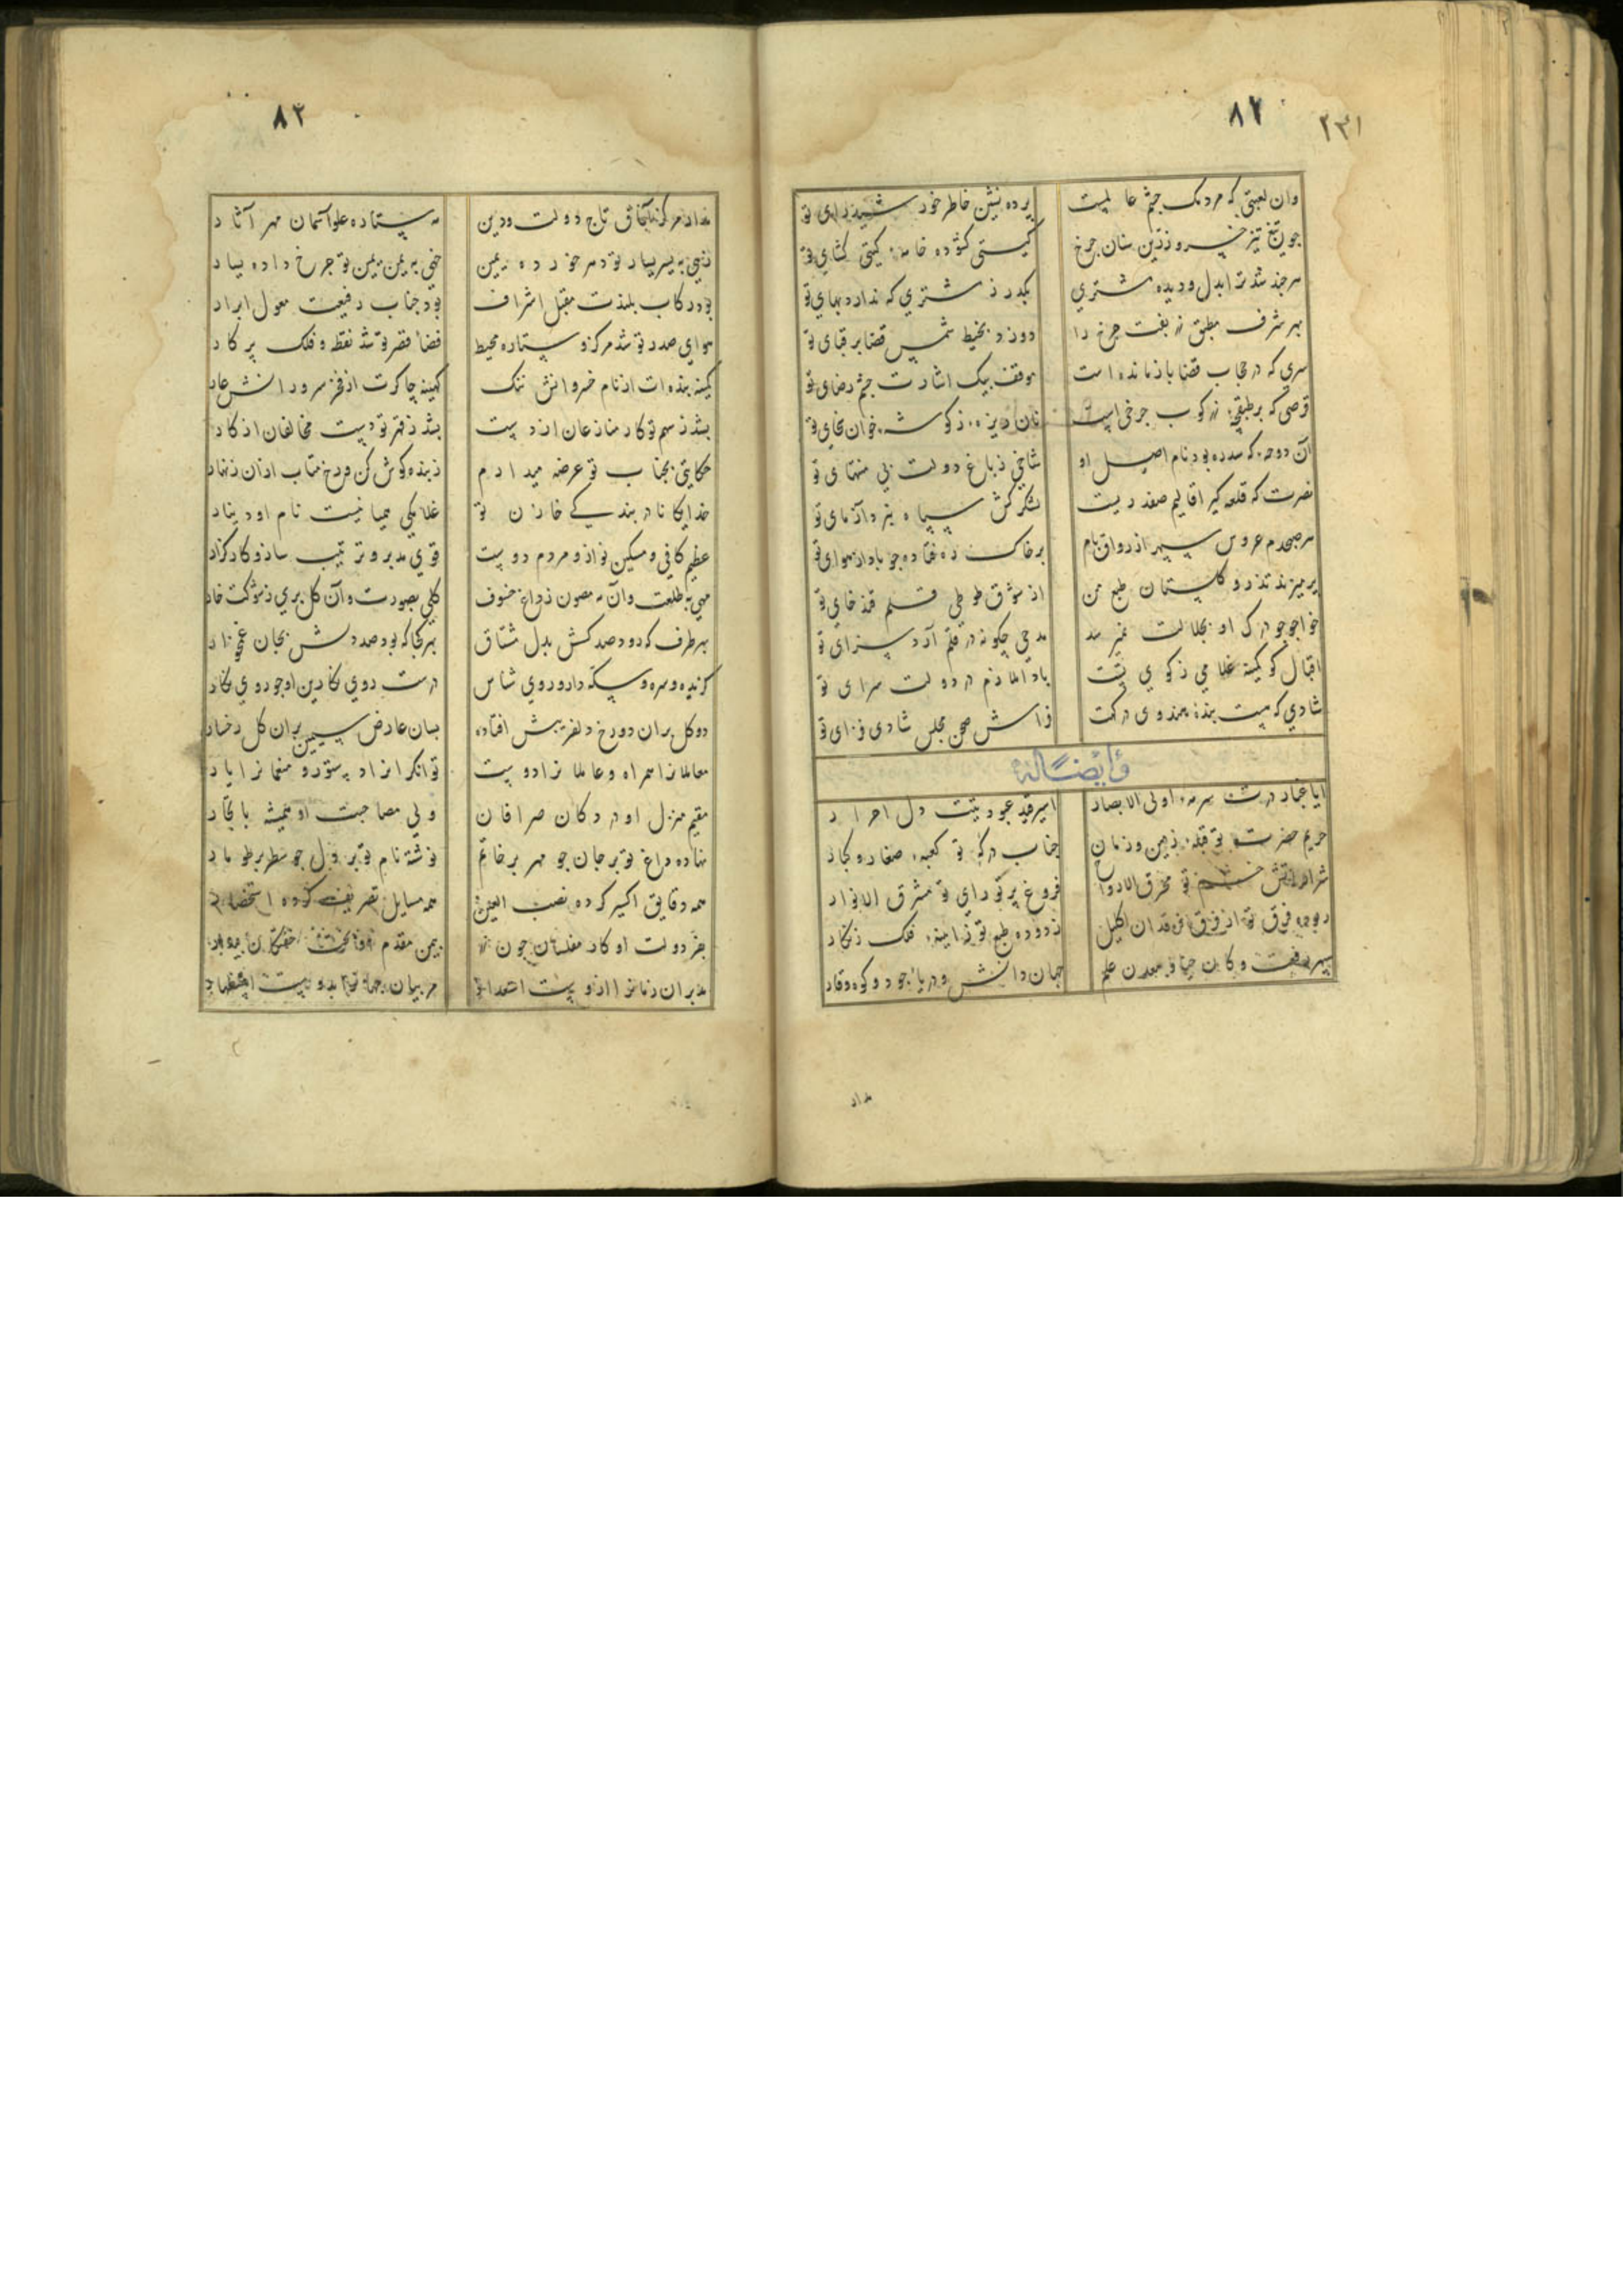 ۸۲
۲۳۱
وان لعبتی که مردمک چشم عالمیست
پرده نشین خاطر خورشید رای تو
چون تیغ تیز خسرو زرین سنان چرخ
گیتی گشوده خامهٔ گیتی گشای تو
هرچند شد ترا بدل و دیده مشتری
بگذر ز مشتری که ندارد بهای تو
بهر شرف مطبق نه بفت چرخ را
دوزد بخیط شمس قضا بر قبای تو
سری که در حجاب قضا باز مانده است
موقف بیک اشارت چشم رضای تو
قرصی که بر طبقچهٔ نه کوب چرخی است
نان ریزهٔ ز گوشهٔ خوان سخای تو
آن دوحه که سدره بود نام اصل او
شاخی ز باغ دولت بی منتهای تو
نصرت که قلعه گیر اقالیم صفدریست
لشکر کش سپاه نبرد آزمای تو
هر صبحدم عروس سپهر از رواق بام
بر خاک ره فتاده چو باد از هوای تو
پر میزند تذرو گلستان طبع من
از شوق طوطی قلم قند خای تو
خواجو چو درک او بجلالت نمیرسد
مدحی چگونه در قلم آرد سزای تو
اقبال کو کمینه غلامی ز کوی تست
بادا ملازم در دولت سرای تو
شادی که هست بنده هندوی درگهت
فراش صحن مجلس شادی فزای تو
وایضاً له
ایا غبار درت سرمهٔ اولی الابصار
اسیر قید عبودیتت دل احرار
حریم حضرت تو قبلهٔ زمین و زمان
جناب درگه تو کعبهٔ صغار و کبار
شرار آتش خشم تو محرق الارواح
فروغ پرتو رای تو مشرق الانوار
ربوده فرق تو از فرق فرقدان اکلیل
زدوده طبع تو ز آیینهٔ فلک زنگار
سپهر رفعت و کان حیا و معدن علم
جهان دانش و دریا جود و کوه وقار
مدار
۸۳
مدار مرکز آفاق تاج دولت و دین
مه ستاره علو آسمان مهر آثار
زهی به یسر یسار تو دهر خورده یمین
خهی به یمن یمین تو چرخ داده یسار
بود رکاب بلندت مقبل اشراف
بود جناب رفیعت معول ابرار
هوای صدر تو شد مرکز و ستاره محیط
فضاء قصر تو شد نقطه و فلک پرگار
کمینه بنده ات از نام خسروانش ننگ
کهینه چاکرت از فخر سرورانش عار
بشد ز سهم تو کار منازعان از دست
بشد ز قهر تو دست مخالفان از کار
حکایتی بجناب تو عرضه میدارم
ز بنده گوش کن و رخ متاب ازان زنهار
خدایگانا در بندگی خازن تو
غلامکی همیانیست نام او دینار
عظیم کافی و مسکین نواز و مردم دوست
قوی مدبر و ترتیب ساز و کارگزار
مهی به طلعت و آن مه مصون ز داغ خسوف
گلی بصورت و آن گل بری ز شوکت خار
بهر طرف که رود صد کسش بدل مشتاق
بهر کجا که بود صد دلش بجان غمخوار
گزیده و سره و سکه دار و روی شناس
درست روی نگارین او چو روی نگار
دو گل بران دو رخ دلفریبش افتاده
بسان عارض سیمین بران گل رخسار
معاملان را همراه و عاملان را دوست
توانگران را دستور و منعمان را یار
مقیم منزل او در دکان صرافان
ولی مصاحبت او همیشه با تجار
نهاده داغ تو بر جان چو مهر بر خاتم
نوشته نام تو بر دل چو سطر بر طومار
همه دقایق اکسیر کرده نصب العین
همه مسایل تصریف کرده استحضار